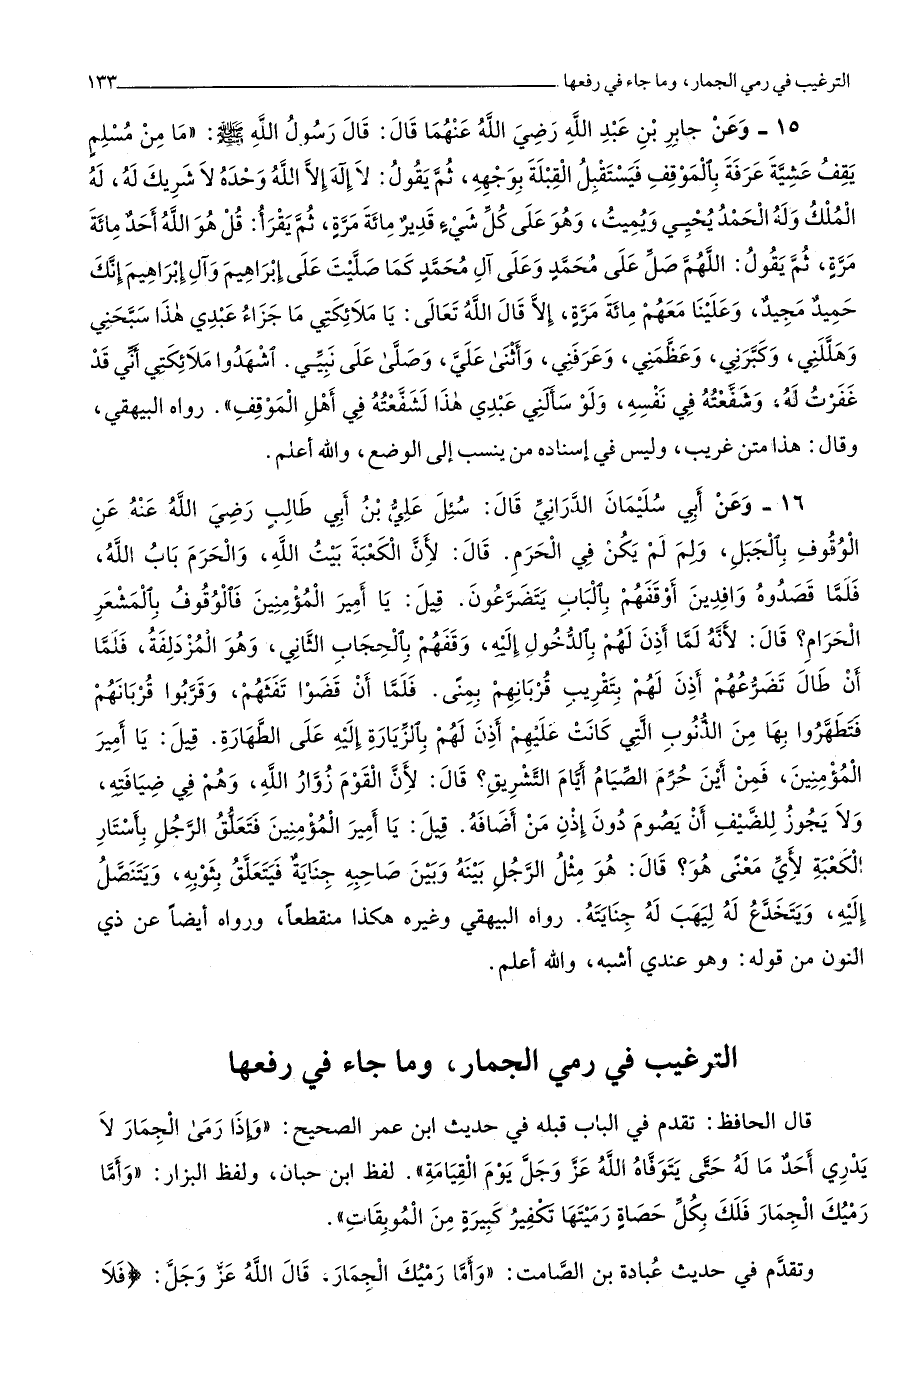 الترغيب في رمي الجمار، وما جاء في رفعها ١٣٣
١٥ ـ وَعَنْ جابِرِ بْنِ عَبْدِ اللَّهِ رَضِيَ اللَّهُ عَنْهُمَا قَالَ: قَالَ رَسُولُ اللَّهِ ﷺ: «مَا مِنْ مُسْلِمٍ
يَقِفُ عَشِيَّةَ عَرَفَةَ بِٱلْمَوْقِفِ فَيَسْتَقْبِلُ الْقِبْلَةَ بِوَجْهِهِ، ثُمَّ يَقُولُ: لاَ إِلٰهَ إِلاَّ اللَّهُ وَحْدَهُ لاَ شَرِيكَ لَهُ، لَهُ
الْمُلْكُ وَلَهُ الْحَمْدُ يُحْيِـي وَيُمِيتُ، وَهُوَ عَلَى كُلِّ شَيْءٍ قَدِيرٌ مِائَةَ مَرَّةٍ، ثُمَّ يَقْرَأُ: قُلْ هُوَ اللَّهُ أَحَدٌ مِائَةَ
مَرَّةٍ، ثُمَّ يَقُولُ: اللَّهُمَّ صَلِّ عَلَى مُحَمَّدٍ وَعَلَى آلِ مُحَمَّدٍ كَمَا صَلَّيْتَ عَلَى إِبْرَاهِيمَ وَآلِ إِبْرَاهِيمَ إِنَّكَ
حَمِيدٌ مَجِيدٌ، وَعَلَيْنَا مَعَهُمْ مِائَةَ مَرَّةٍ، إِلاَّ قَالَ اللَّهُ تَعَالَى: يَا مَلاَئِكَتِي مَا جَزَاءُ عَبْدِي هٰذَا سَبَّحَنِي
وَهَلَّلَنِي، وَكَبَّرَنِي، وَعَظَّمَنِي، وَعَرَفَنِي، وَأَثْنَىٰ عَلَيَّ، وَصَلَّىٰ عَلَى نَبِيِّـي. ٱشْهَدُوا مَلاَئِكَتِي أَنِّي قَدْ
غَفَرْتُ لَهُ، وَشَفَّعْتُهُ فِي نَفْسِهِ، وَلَوْ سَأَلَنِي عَبْدِي هٰذَا لَشَفَّعْتُهُ فِي أَهْلِ الْمَوْقِفِ». رواه البيهقي،
وقال: هذا متن غريب، وليس في إسناده من ينسب إلى الوضع، والله أعلم.
١٦ ـ وَعَنْ أَبِي سُلَيْمَانَ الدَّرَانِيِّ قَالَ: سُئِلَ عَلِيُّ بْنُ أَبِي طَالِبٍ رَضِيَ اللَّهُ عَنْهُ عَنِ
الْوُقُوفِ بِٱلْجَبَلِ، وَلِمَ لَمْ يَكُنْ فِي الْحَرَمِ. قَالَ: لأَنَّ الْكَعْبَةَ بَيْتُ اللَّهِ، وَالْحَرَمَ بَابُ اللَّهُ،
فَلَمَّا قَصَدُوهُ وَافِدِينَ أَوْقَفَهُمْ بِٱلْبَابِ يَتَضَرَّعُونَ. قِيلَ: يَا أَمِيرَ الْمُؤْمِنِينَ فَٱلْوُقُوفُ بِٱلْمَشْعَرِ
الْحَرَامِ؟ قَالَ: لأَنَّهُ لَمَّا أَذِنَ لَهُمْ بِٱلدُّخُولِ إِلَيْهِ، وَقَفَهُمْ بِٱلْحِجَابِ الثَّانِي، وَهُوَ الْمُزْدَلِفَةُ، فَلَمَّا
أَنْ طَالَ تَضَرُّعُهُمْ أَذِنَ لَهُمْ بِتَقْرِيبِ قُرْبَانِهِمْ بِمِنًى. فَلَمَّا أَنْ قَضَوْا تَفَثَهُمْ، وَقَرَّبُوا قُرْبَانَهُمْ
فَتَطَهَّرُوا بِهَا مِنَ الذُّنُوبِ الَّتِي كَانَتْ عَلَيْهِمْ أَذِنَ لَهُمْ بِٱلزِّيَارَةِ إِلَيْهِ عَلَى الطَّهَارَةِ. قِيلَ: يَا أَمِيرَ
الْمُؤْمِنِينَ، فَمِنْ أَيْنَ حُرِّمَ الصِّيَامُ أَيَّامَ التَّشْرِيقِ؟ قَالَ: لأَنَّ الْقَوْمَ زُوَّارُ اللَّهِ، وَهُمْ فِي ضِيَافَتِهِ،
وَلاَ يَجُوزُ لِلضَّيْفِ أَنْ يَصُومَ دُونَ إِذْنِ مَنْ أَضَافَهُ. قِيلَ: يَا أَمِيرَ الْمُؤْمِنِينَ فَتَعَلُّقُ الرَّجُلِ بِأَسْتَارِ
الْكَعْبَةِ لِأَيِّ مَعْنًى هُوَ؟ قَالَ: هُوَ مِثْلُ الرَّجُلِ بَيْنَهُ وَبَيْنَ صَاحِبِهِ جِنَايَةٌ فَيَتَعَلَّقُ بِثَوْبِهِ، وَيَتَنَصَّلُ
إِلَيْهِ، وَيَتَخَدَّعُ لَهُ لِيَهَبَ لَهُ جِنَايَتَهُ. رواه البيهقي وغيره هكذا منقطعاً، ورواه أيضاً عن ذي
النون من قوله: وهو عندي أشبه، والله أعلم.
الترغيب في رمي الجمار، وما جاء في رفعها
قال الحافظ: تقدم في الباب قبله في حديث ابن عمر الصحيح: «وَإِذَا رَمَىٰ الْجِمَارَ لاَ
يَدْرِي أَحَدٌ مَا لَهُ حَتَّى يَتَوَفَّاهُ اللَّهُ عَزَّ وَجَلَّ يَوْمَ الْقِيَامَةِ». لفظ ابن حبان، ولفظ البزار: «وَأَمَّا
رَمْيُكَ الْجِمَارَ فَلَكَ بِكُلِّ حَصَاةٍ رَمَيْتَهَا تَكْفِيرُ كَبِيرَةٍ مِنَ الْمُوبِقَاتِ».
وتقدَّم في حديث عُبادة بن الصَّامت: «وَأَمَّا رَمْيُكَ الْجِمَارَ، قَالَ اللَّهُ عَزَّ وَجَلَّ: ﴿فَلاَ